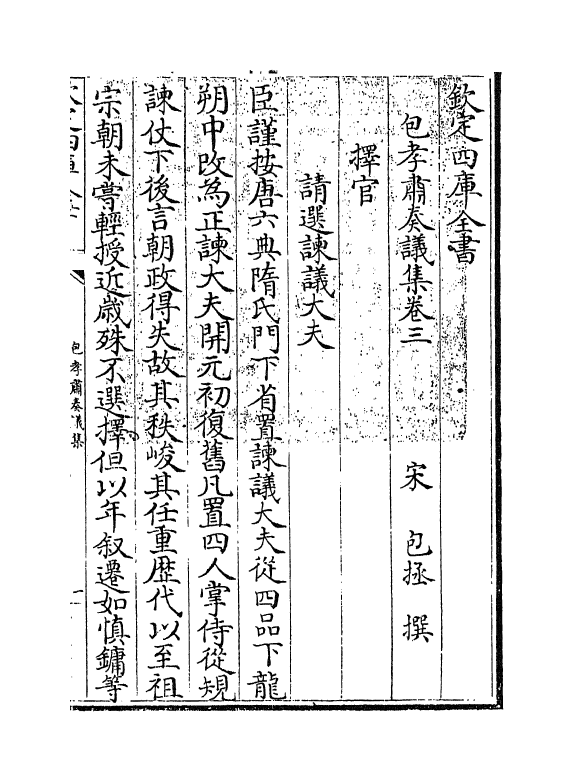 欽定四庫全書
包孝肅奏議集卷三
宋 包拯 撰
擇官
請選諫議大夫
臣謹按唐六典隋氏門下省置諫議大夫從四品下龍
朔中改為正諫大夫開元初復舊凡置四人掌侍從規
諫仗下後言朝政得失故其秩峻其任重歴代以至祖
宗朝未嘗輕授近歳殊不選擇但以年叙遷如慎鏞等
包孝肅奏議集